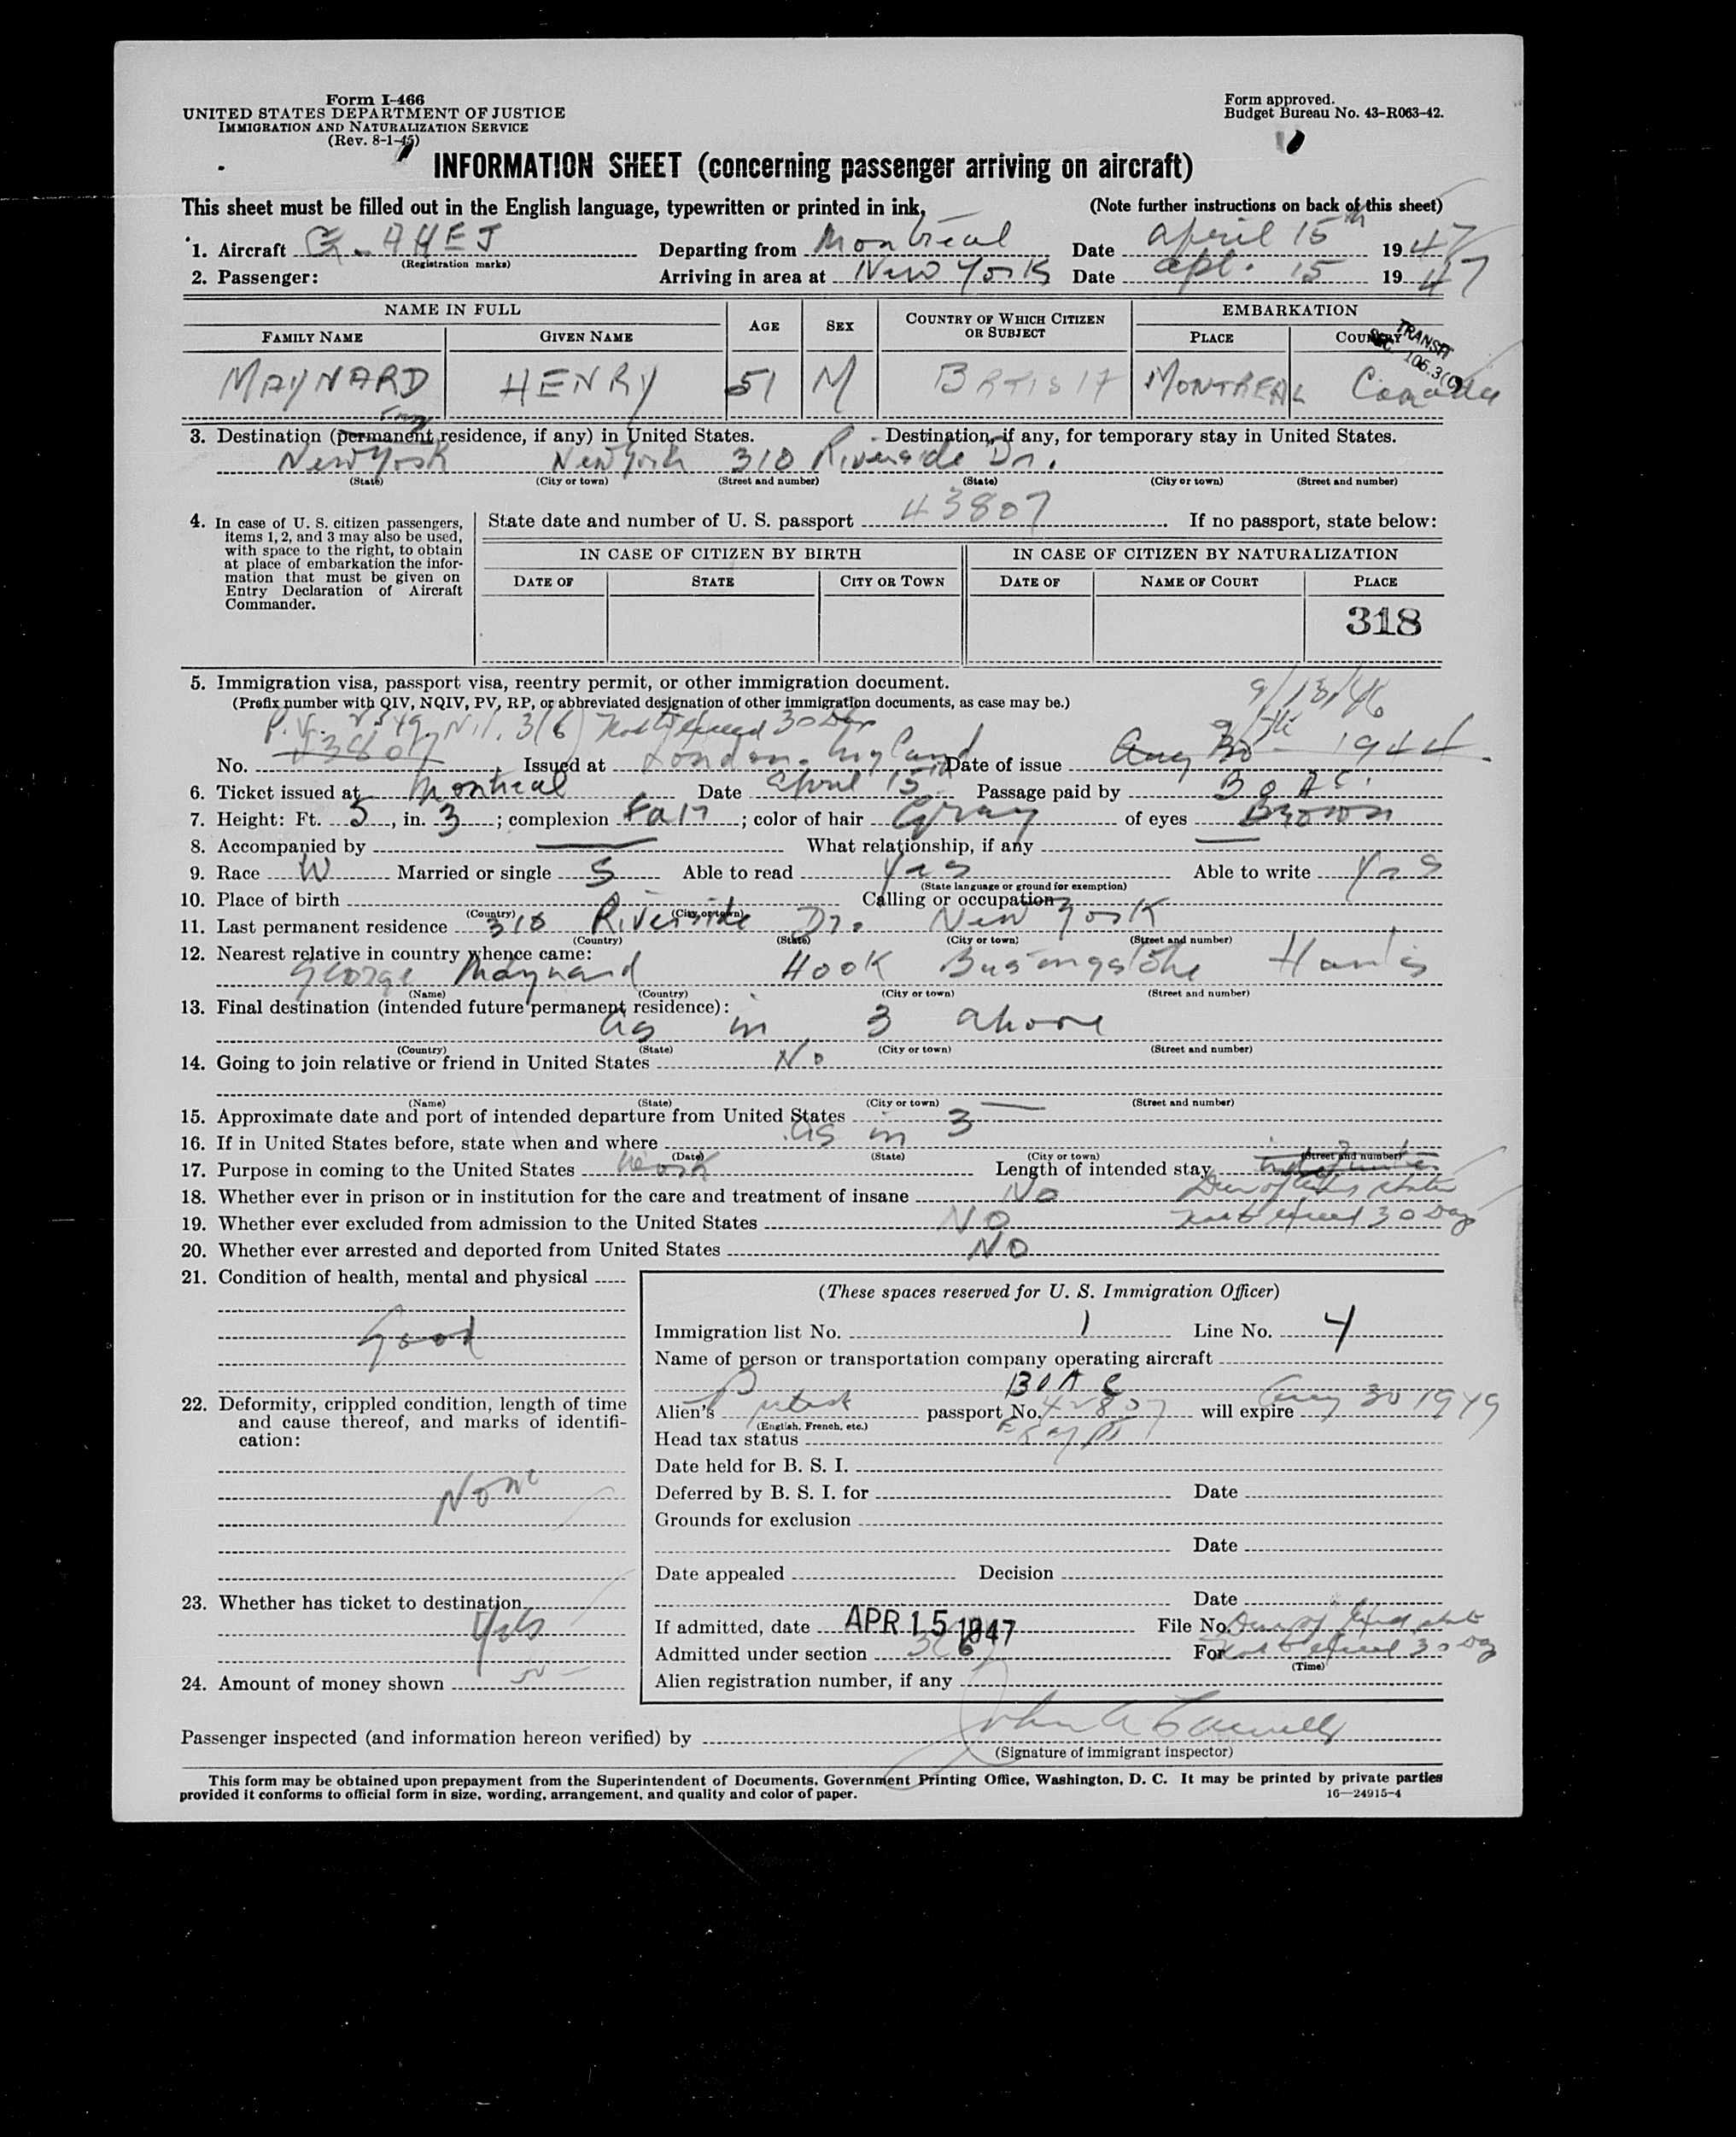 Form I-466
UNITED STATES DEPARTMENT OF JUSTICE
IMMIGRATION AND NATURALIZATION SERVICE
(Rev. 8-1-45)
Form approved.
Budget Bureau No. 43-R063-42.
INFORMATION SHEET (concerning passenger arriving on aircraft)
This sheet must be filled out in the English language, typewritten or printed in ink. (Note further instructions on back of this sheet)
1. Aircraft G-AHEJ Departing from Montreal Date April 15th 1947
(Registration marks)
2. Passenger: Arriving in area at New York Date Apl. 15 1947
NAME IN FULL AGE SEX COUNTRY OF WHICH CITIZEN OR SUBJECT EMBARKATION
FAMILY NAME GIVEN NAME PLACE COUNTRY
TRANSIT
SEC. 106.3(C)
MAYNARD HENRY 51 M BRTIS17 MONTREAL Canada
3. Destination (permanent residence, if any) in United States. Destination, if any, for temporary stay in United States.
New York New York 310 Riverside Dr.
(State) (City or town) (Street and number) (State) (City or town) (Street and number)
4. In case of U. S. citizen passengers, items 1, 2, and 3 may also be used, with space to the right, to obtain at place of embarkation the information that must be given on Entry Declaration of Aircraft Commander.
State date and number of U. S. passport 43807. If no passport, state below:
IN CASE OF CITIZEN BY BIRTH IN CASE OF CITIZEN BY NATURALIZATION
DATE OF STATE CITY OR TOWN DATE OF NAME OF COURT PLACE
318
5. Immigration visa, passport visa, reentry permit, or other immigration document.
(Prefix number with QIV, NQIV, PV, RP, or abbreviated designation of other immigration documents, as case may be.)
9/13/46
P.V. 3(6) Not to exceed 30 Days
No. 43807 Issued at London. England Date of issue Aug 30th 1944
6. Ticket issued at Montreal Date April 15th Passage paid by B O A C.
7. Height: Ft. 5, in. 3; complexion Fair; color of hair Gray of eyes Brown
8. Accompanied by — What relationship, if any —
9. Race W Married or single S Able to read Yes Able to write Yes
(State language or ground for exemption)
10. Place of birth Calling or occupation
(Country) (City or town)
11. Last permanent residence 310 Riverside Dr. New York
(Country) (State) (City or town) (Street and number)
12. Nearest relative in country whence came:
George Maynard Hook Basingstoke Hants
(Name) (Country) (City or town) (Street and number)
13. Final destination (intended future permanent residence):
As in 3 above
(Country) (State) (City or town) (Street and number)
14. Going to join relative or friend in United States No
(Name) (State) (City or town) (Street and number)
15. Approximate date and port of intended departure from United States —
16. If in United States before, state when and where As in 3
(Date) (State) (City or town) (Street and number)
17. Purpose in coming to the United States Work Length of intended stay indefinite
18. Whether ever in prison or in institution for the care and treatment of insane No
19. Whether ever excluded from admission to the United States NO Not to exceed 30 Days
20. Whether ever arrested and deported from United States NO
21. Condition of health, mental and physical
Good
22. Deformity, crippled condition, length of time and cause thereof, and marks of identification:
None
23. Whether has ticket to destination
Yes
24. Amount of money shown
(These spaces reserved for U. S. Immigration Officer)
Immigration list No. 1 Line No. 4
Name of person or transportation company operating aircraft
BOAC
Alien's British passport No. 42807 will expire Aug 30 1949
(English, French, etc.)
Head tax status Exempt
Date held for B. S. I.
Deferred by B. S. I. for Date
Grounds for exclusion
Date
Date appealed Decision
Date
If admitted, date APR 15 1947 File No.
Admitted under section 3(6) For Not to exceed 30 Days
(Time)
Alien registration number, if any
Passenger inspected (and information hereon verified) by John A
(Signature of immigrant inspector)
This form may be obtained upon prepayment from the Superintendent of Documents, Government Printing Office, Washington, D. C. It may be printed by private parties
provided it conforms to official form in size, wording, arrangement, and quality and color of paper. 16—24915-4